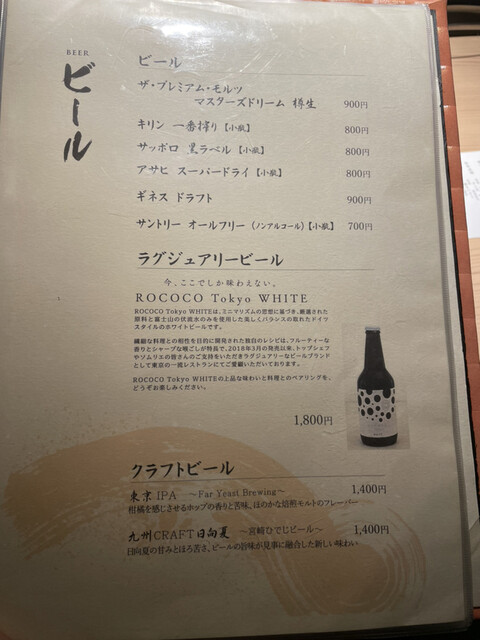 BEER
ビール
ビール
ザ・プレミアム・モルツ
マスターズドリーム 樽生 900円
キリン 一番搾り【小瓶】 800円
サッポロ 黒ラベル【小瓶】 800円
アサヒ スーパードライ【小瓶】 800円
ギネス ドラフト 900円
サントリー オールフリー (ノンアルコール)【小瓶】 700円
ラグジュアリービール
今、ここでしか味わえない。
ROCOCO Tokyo WHITE
ROCOCO Tokyo WHITEは、ミニマリズムの思想に基づき、厳選された
原料と富士山の伏流水のみを使用した美しくバランスの取れたドイツ
スタイルのホワイトビールです。
繊細な料理との相性を目的に開発された独自のレシピは、フルーティーな
香りとシャープな喉ごしが特長で、2018年3月の発売以来、トップシェフ
やソムリエの皆さんのご支持をいただきラグジュアリーなビールブランド
として東京の一流レストランにてご愛顧いただいております。
ROCOCO Tokyo WHITEの上品な味わいと料理とのペアリングを、
どうぞお楽しみください。
1,800円
クラフトビール
東京IPA ～Far Yeast Brewing～ 1,400円
柑橘を感じさせるホップの香りと苦味。ほのかな焙煎モルトのフレーバー
九州CRAFT日向夏 ～宮崎ひでじビール～ 1,400円
日向夏の甘みとほろ苦さ、ビールの旨味が見事に融合した新しい味わい